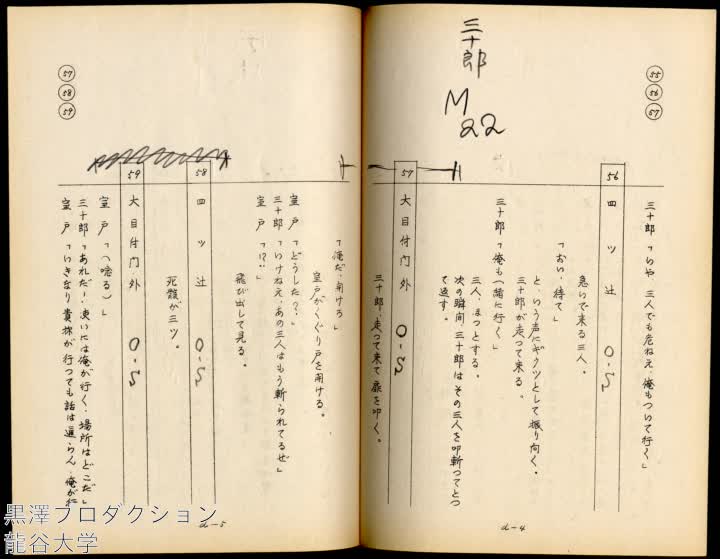 三十郎
M
22
55
56
57
三十郎「いや、三人でも危ねえ、俺もついて行く」
56 四ツ辻 O・S
急いで来る三人。
「おい、待て」
と、いう声にギクッとして振り向く。
三十郎が走って来る。
三十郎「俺も一緒に行く」
三人、ほっとする。
次の瞬間、三十郎はその三人を叩斬ってとっ
て返す。
57 大目付門外 O・S
三十郎、走って来て扉を叩く。
d-4
57
58
59
「俺だ、開けろ」
室戸がくぐり戸を開ける。
室戸「どうした?」
三十郎「いけねえ、あの三人はもう斬られてるぜ」
室戸「!?」
飛び出して見る。
58 四ツ辻
死骸が三ツ。
59 大目付門外 O・S
室戸「(唸る)」
三十郎「あれだ!、使いには俺が行く、場所はどこだ」
室戸「いきなり貴様が行っても話は通らん、俺が行
d-5
黒澤プロダクション
龍谷大学